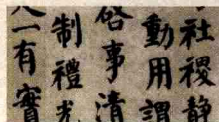 社稷静
動用謂
事清
制禮光
一有實